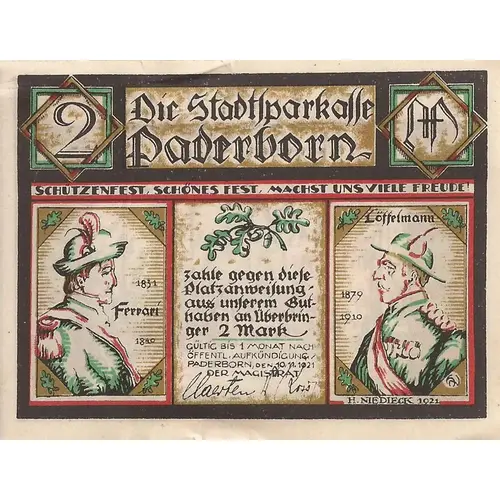 2
Die Stadtsparkasse
M
Paderborn
SCHÜTZENFEST, SCHÖNES FEST, MACHST UNS VIELE FREUDE!
1831
Ferrari
zahle gegen diese
Platzanweisung
aus unserem Gut-
haben an Überbrin-
ger 2 Mark
GÜLTIG BIS 1 MONAT NACH
ÖFFENTL. AUFKÜNDIGUNG
PADERBORN, DEN 10.11.1921
DER MAGISTRAT
Löffelmann
1879
1910
H. NIEDIECK 1921